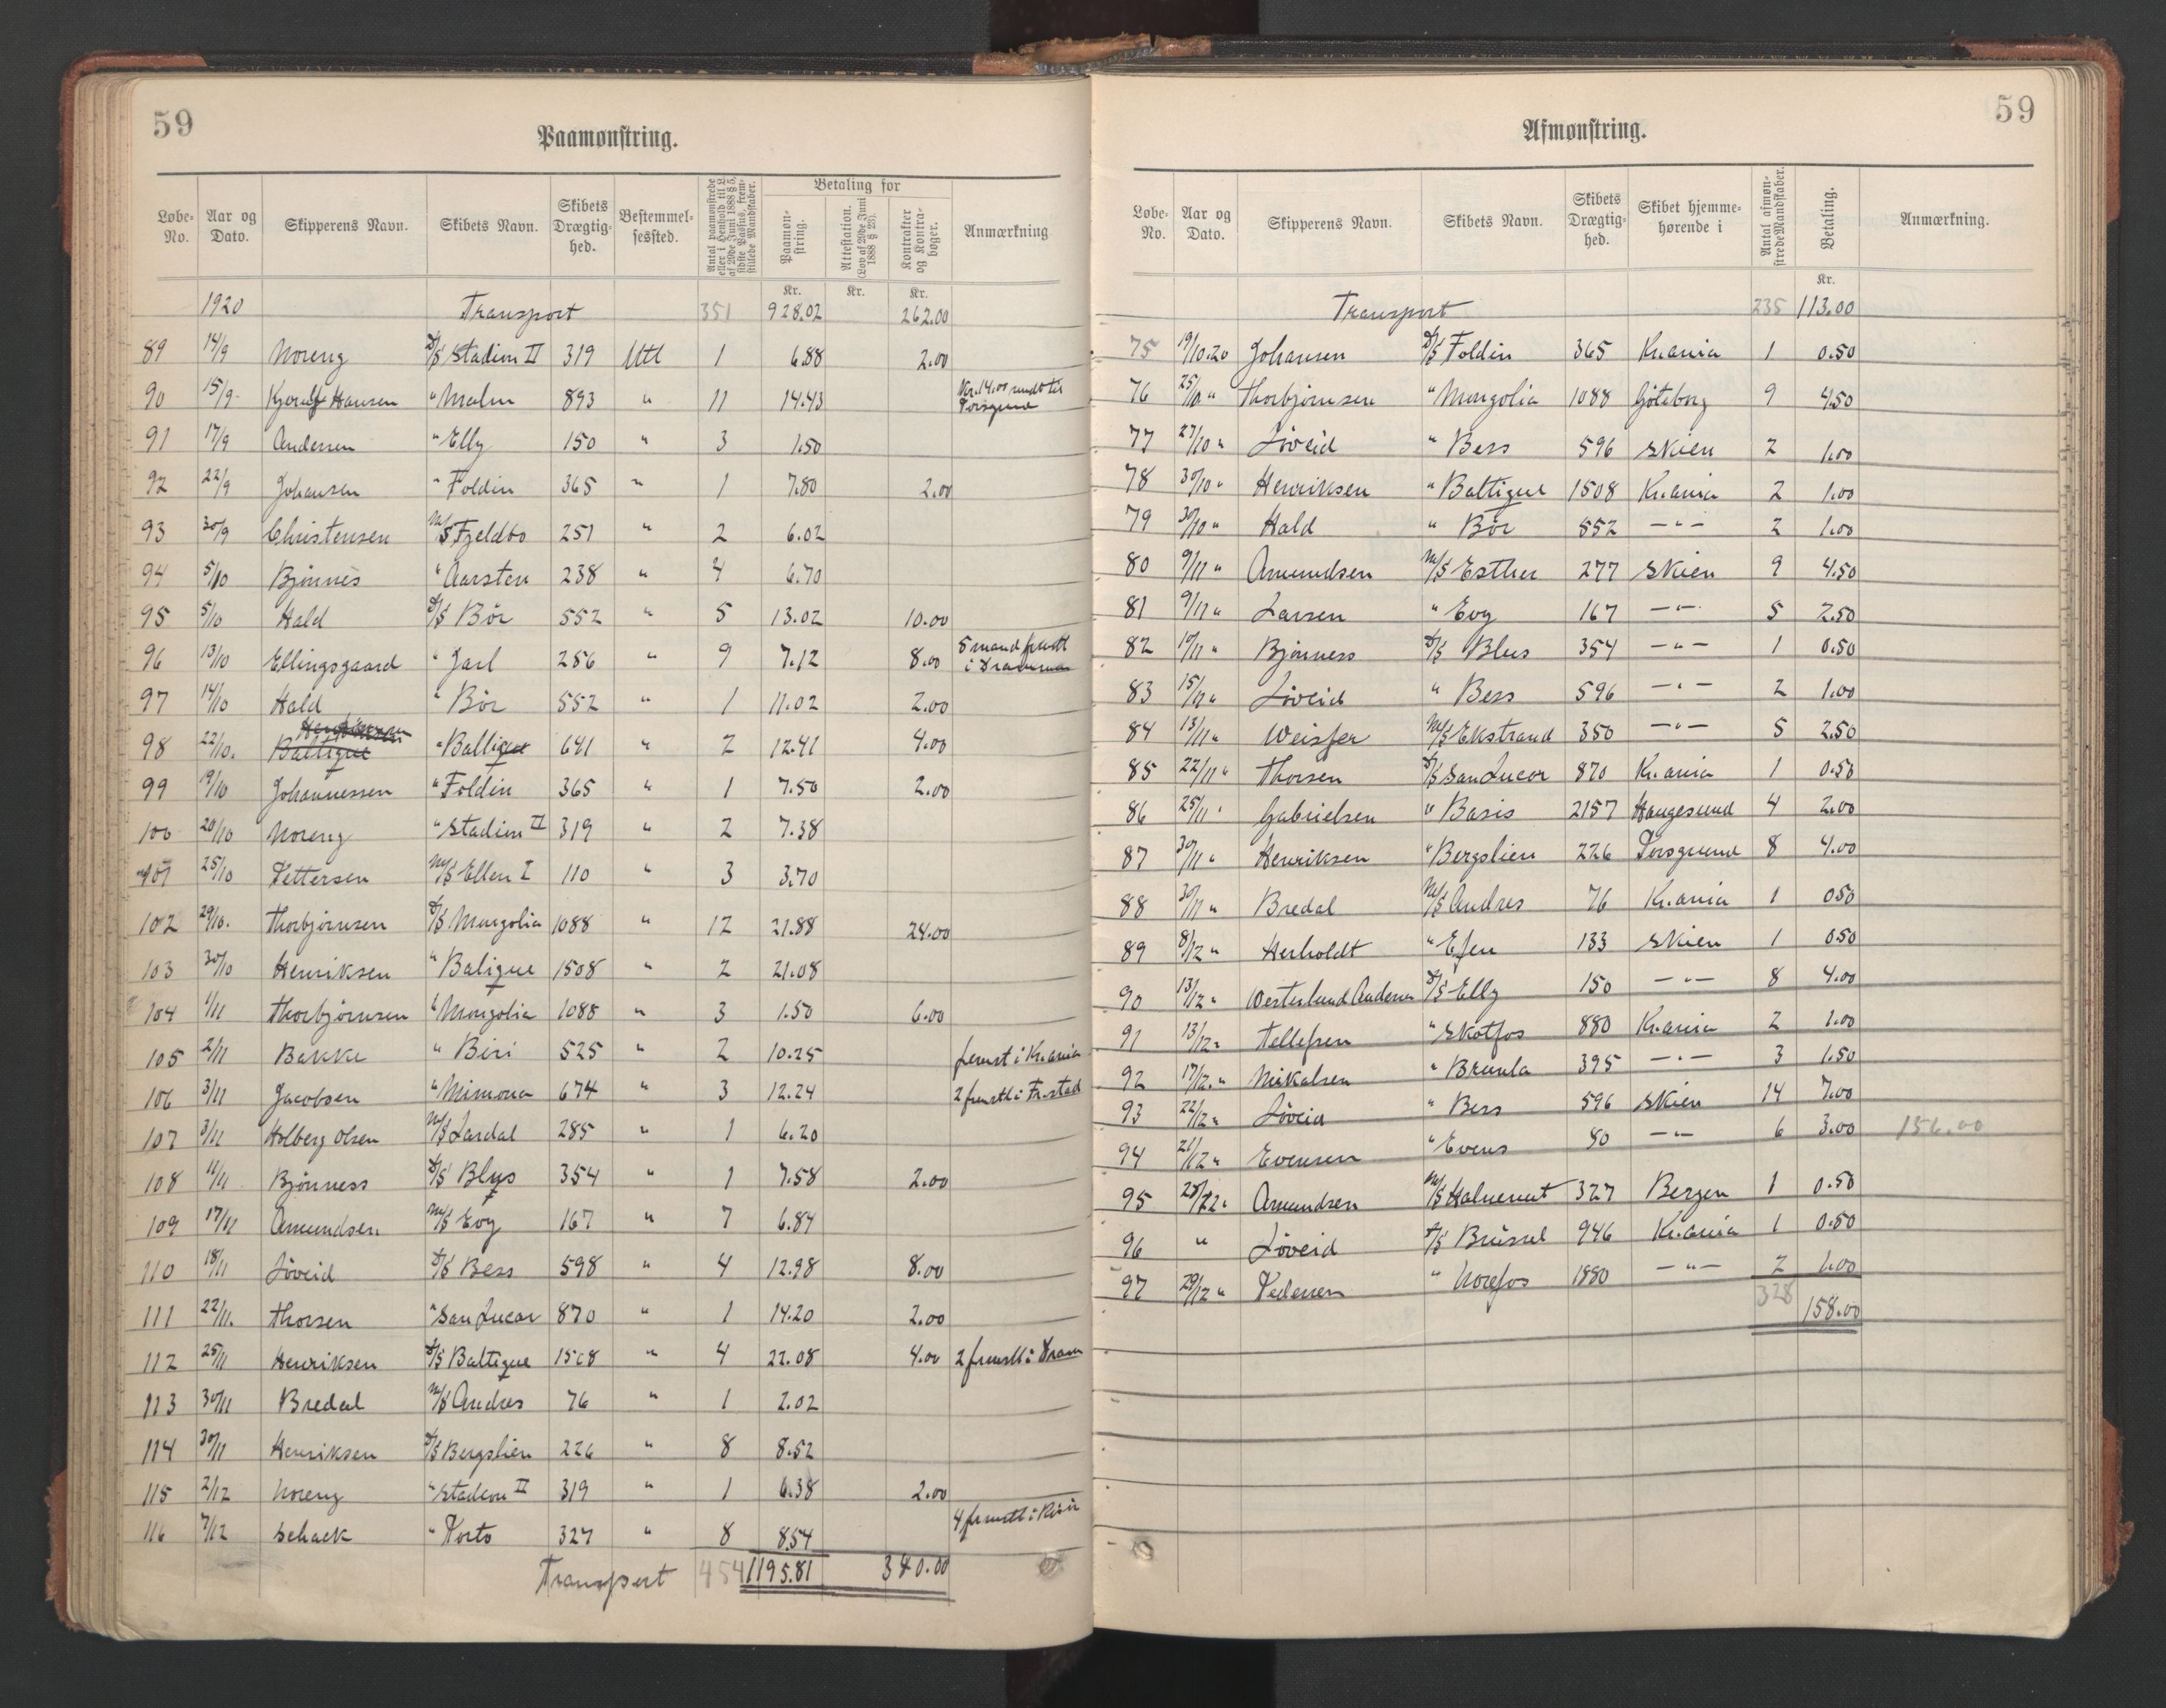 59
Paamønstring.
Løbe-No. | Aar og Dato. | Skipperens Navn. | Skibets Navn. | Skibets Drægtighed. | Bestemmelsessted. | Antal paamønstrede eller i Henhold til L. af 29de Juni 1888 § 5, sidste Passus, fremstillede Mandskaber. | Betaling for Paamønstring. | Attestation. (Lov af 29de Juni 1888 § 23). | Kontrakter og Kontrabøger. | Anmærkning
Kr. Kr. Kr.
1920 Transport 351 928.02 262.00
89 14/9 Noreng D/S Stadion II 319 Utl 1 6.88 2.00
90 15/9 Hansen " Malm 893 " 11 14.43 Kr. 14.00 sendt til Porsgrund
91 17/9 Andersen " Elly 150 " 3 1.50
92 22/9 Johansen " Foldin 365 " 1 7.80 2.00
93 30/9 Christensen M/S Fjeldbo 251 " 2 6.02
94 5/10 Bjønnes " Aarsten 238 " 4 6.70
95 5/10 Hald D/S Bör 552 " 5 13.02 10.00
96 13/10 Ellingsgaard " Jarl 286 " 9 7.12 8.00 5 mand fremst i Drammen
97 14/10 Hald " Bör 552 " 1 11.02 2.00
98 22/10. Baltique " Baltique 641 " 2 12.41 4.00
99 19/10 Johannessen " Foldin 365 " 1 7.50 2.00
100 20/10 Noreng " Stadion II 319 " 2 7.38
101 25/10 Pettersen M/S Ellen I 110 " 3 3.70
102 29/10. Thorbjørnsen D/S Mongolia 1088 " 12 21.88 24.00
103 30/10 Henriksen " Balique 1508 " 2 21.08
104 1/11 Thorbjørnsen " Mongolia 1088 " 3 1.50 6.00
105 2/11 Bakke " Biri 525 " 2 10.25 fremst i Kr.ania
106 3/11 Jacobsen " Mimona 674 " 3 12.24 2 fremst i Fr.stad
107 3/11 Holberg Olsen M/S Lardal 285 " 1 6.20
108 11/11 Bjønness D/S Blys 354 " 1 7.58 2.00
109 17/11 Amundsen M/S Evy 167 " 7 6.84
110 18/11 Löveid D/S Bess 598 " 4 12.98 8.00
111 22/11. Thorsen " San Lucar 870 " 1 14.20 2.00
112 25/11 Henriksen D/S Baltique 1508 " 4 22.08 4.00 2 fremst i Dram
113 30/11 Bredal M/S Andres 76 " 1 2.02
114 30/11 Henriksen D/S Bergslien 226 " 8 8.52
115 2/12 Noreng " Stadion II 319 " 1 6.38 2.00
116 7/12 Schack " Porto 327 " 8 8.54 4 fremst i Risör
Transport 454 1195.81 340.00
59
Afmønstring.
Løbe-No. | Aar og Dato. | Skipperens Navn. | Skibets Navn. | Skibets Drægtighed. | Skibet hjemmehørende i | Antal afmønstrede Mandskaber. | Betaling. | Anmærkning.
Kr.
Transport 235 113.00
75 19/10.20 Johansen D/S Foldin 365 Kr.ania 1 0.50
76 25/10 " Thorbjørnsen " Mongolia 1088 Göteborg 9 4.50
77 27/10 " Löveid " Bess 596 Skien 2 1.00
78 30/10 " Henriksen " Baltique 1508 Kr.ania 2 1.00
79 30/10 " Hald " Bör 552 —"— 2 1.00
80 9/11 " Amundsen M/S Esther 277 Skien 9 4.50
81 9/11 " Larsen " Evy 167 —"— 5 2.50
82 10/11 " Bjønness D/S Blus 354 —"— 1 0.50
83 15/11 " Löveid " Bess 596 —"— 2 1.00
84 13/11 " Weisfer M/S Ekstrand 350 —"— 5 2.50
85 22/11 " Thorsen D/S San Lucar 870 Kr.ania 1 0.50
86 25/11 " Gabrielsen " Basis 2157 Haugesund 4 2.00
87 30/11 " Henriksen " Bergslien 226 Porsgrund 8 4.00
88 30/11 " Bredal M/S Andres 76 Kr.ania 1 0.50
89 8/12 " Herholdt " Efen 133 Skien 1 0.50
90 13/12 " Westerlund Andersen D/S Elly 150 —"— 8 4.00
91 13/12 " Tellefsen " Skotfos 880 Kr.ania 2 1.00
92 17/12. " Mikalsen " Brunla 395 —"— 3 1.50
93 22/12 " Löveid " Bess 596 Skien 14 7.00
94 21/12 " Evensen " Evens 80 —"— 6 3.00 156.00
95 28/12 " Amundsen M/S Halvenut 327 Bergen 1 0.50
96 " Löveid D/S Brüssel 946 Kr.ania 1 0.50
97 29/12 " Pedersen " Norefos 1880 —"— 2 1.00
328 158.00